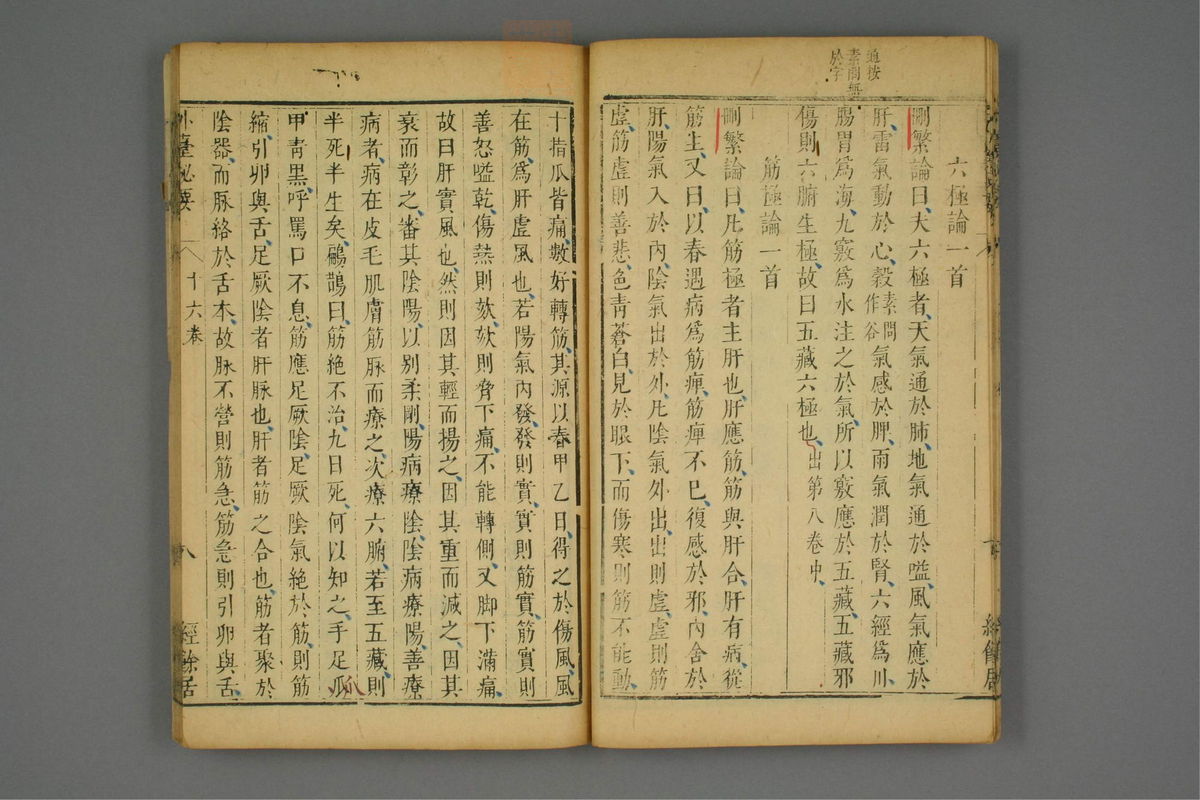 通按
素問無
於字
六極論一首
刪繁論曰夫六極者天氣通於肺地氣通於嗌風氣應於
肝雷氣動於心穀素問作谷氣感於脾雨氣潤於腎六經為川
腸胃為海九竅為水注之於氣所以竅應於五藏五藏邪
傷則六腑生極故曰五藏六極也出第八卷中
筋極論一首
刪繁論曰凡筋極者主肝也肝應筋筋與肝合肝有病從
筋生又曰以春遇病為筋痺筋痺不已復感於邪內舍於
肝陽氣入於內陰氣出於外凡陰氣外出出則虛虛則筋
虛筋虛則善悲色青蒼白見於眼下而傷寒則筋不能動
十指爪皆痛數好轉筋其源以春甲乙日得之於傷風風
在筋為肝虛風也若陽氣內發發則實實則筋實筋實則
善怒嗌乾傷熱則欬欬則脅下痛不能轉側又脚下滿痛
故曰肝實風也然則因其輕而揚之因其重而減之因其
衰而彰之審其陰陽以別柔剛陽病療陰陰病療陽善療
病者病在皮毛肌膚筋脉而療之次療六腑若至五藏則
半死半生矣鶣鵲曰筋絕不治九日死何以知之手足爪
甲青黑呼罵口不息筋應足厥陰足厥陰氣絕於筋則筋
縮引卵與舌足厥陰者肝脉也肝者筋之合也筋者聚於
陰器而脉絡於舌本故脉不營則筋急筋急則引卵與舌
外臺秘要 十六卷 八 經餘居